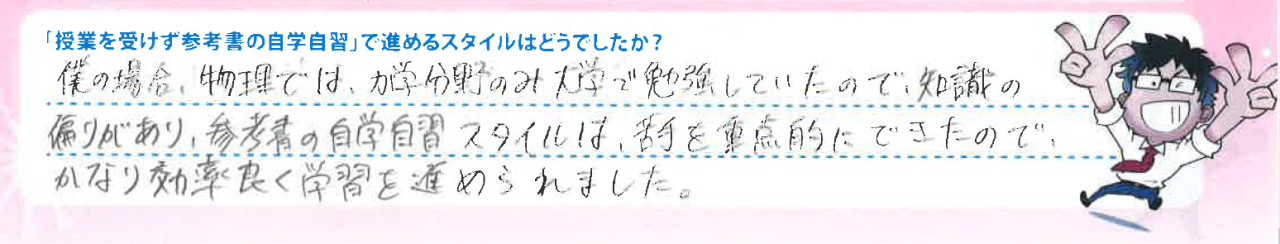 「授業を受けず参考書の自学自習」で進めるスタイルはどうでしたか？
僕の場合、物理では、力学分野のみ大学で勉強していたので、知識の
偏りがあり、参考書の自学自習スタイルは、苦手を重点的にできたので、
かなり効率良く学習を進められました。